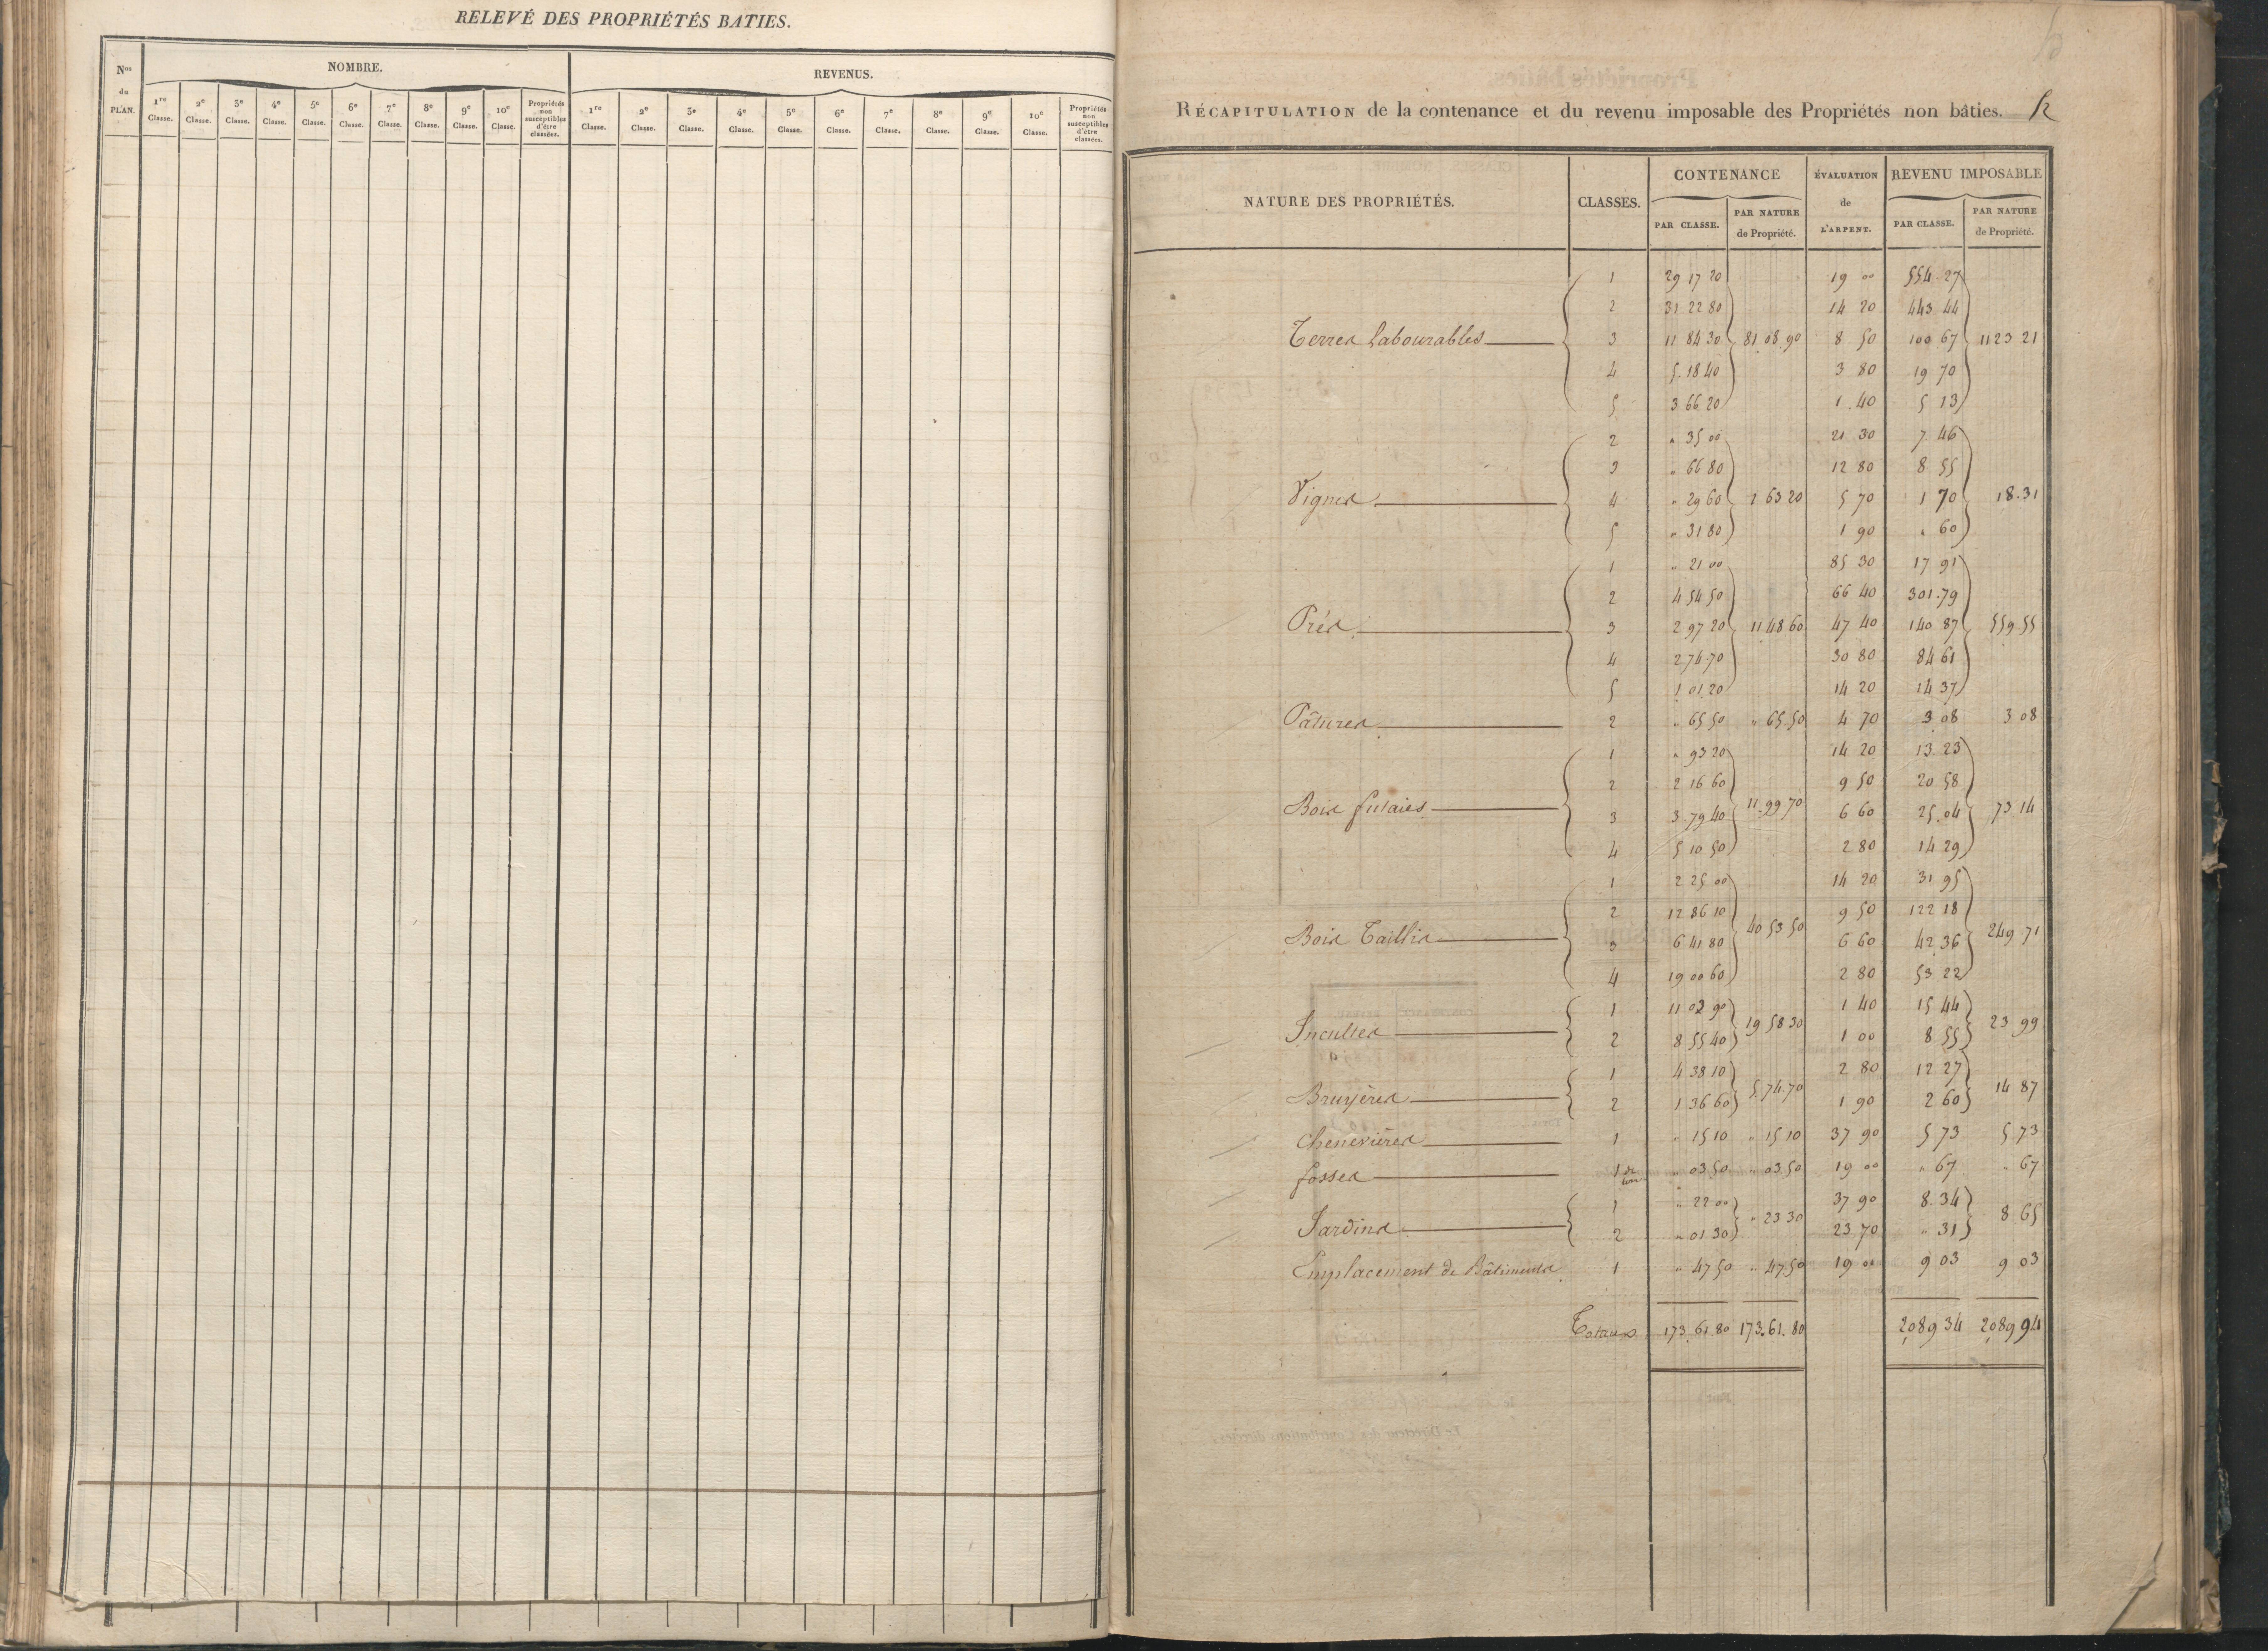 RELEVÉ DES PROPRIÉTÉS BATIES.
Nos du PLAN.
NOMBRE.
REVENUS.
1re Classe. 2e Classe. 3e Classe. 4e Classe. 5e Classe. 6e Classe. 7e Classe. 8e Classe. 9e Classe. 10e Classe. Propriétés non susceptibles d'être classées.
1re Classe. 2e Classe. 3e Classe. 4e Classe. 5e Classe. 6e Classe. 7e Classe. 8e Classe. 9e Classe. 10e Classe. Propriétés non susceptibles d'être classées.
RÉCAPITULATION de la contenance et du revenu imposable des Propriétés non bâties.
NATURE DES PROPRIÉTÉS. CLASSES. CONTENANCE ÉVALUATION de L'ARPENT. REVENU IMPOSABLE
PAR CLASSE. PAR NATURE de Propriété. PAR CLASSE. PAR NATURE de Propriété.
1 29 17 20 19 00 554.27
2 31 22 80 14 20 443 44
Terres labourables 3 11 84 30 81 08 90 8 50 100 67 1123 21
4 5.18 40 3 80 19 70
5 3 66 20 1.40 5 13
2 " 35 00 21 30 7.46
3 " 66 80 12 80 8 55
Vignes 4 " 29 60 1 63 20 5 70 1 70 18.31
5 " 31 80 1 90 " 60
1 " 21 00 85 30 17 91
2 4 54 50 66 40 301.79
Prés 3 2 97 20 11 48 60 47 40 140 87 559.55
4 2 74 70 30 80 84 61
5 1 01 20 14 20 14 37
Pâtures 2 " 65 50 " 65.50 4 70 3 08 3 08
1 " 93 20 14 20 13.23
2 2 16 60 9 50 20 58
Bois futaies 3 3.79 40 11.99 70 6 60 25.04 73 14
4 5 10 50 2 80 14 29
1 2 25 00 14 20 31 95
2 12 86 10 9 50 122 18
Bois Taillis 3 6 41 80 40 53 50 6 60 42.36 249 71
4 19 00 60 2 80 53 22
1 11 02 90 1 40 15 44
Incultes 2 8 55 40 19 58 30 1 00 8 55 23 99
1 4 38 10 2 80 12 27
Bruyères 2 1 36 60 5.74.70 1 90 2 60 14 87
Chenevières 1 " 15 10 " 15 10 37 90 5 73 5 73
fosses 1 " 03.50 " 03.50 19 00 " 67 " 67
1 " 22 00 37 90 8.34
Jardins 2 " 01 30 " 23 30 23.70 " 31 8.65
Emplacement de Bâtiments 1 " 47 50 " 47.50 19 00 9 03 9 03
Totaux 173.61.80 173.61.80 2089 94 2089 94